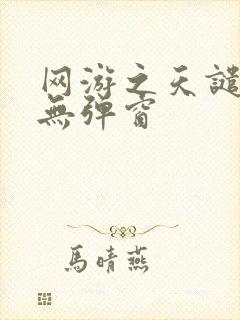 网游之天譴
無弹窗
馬晴燕